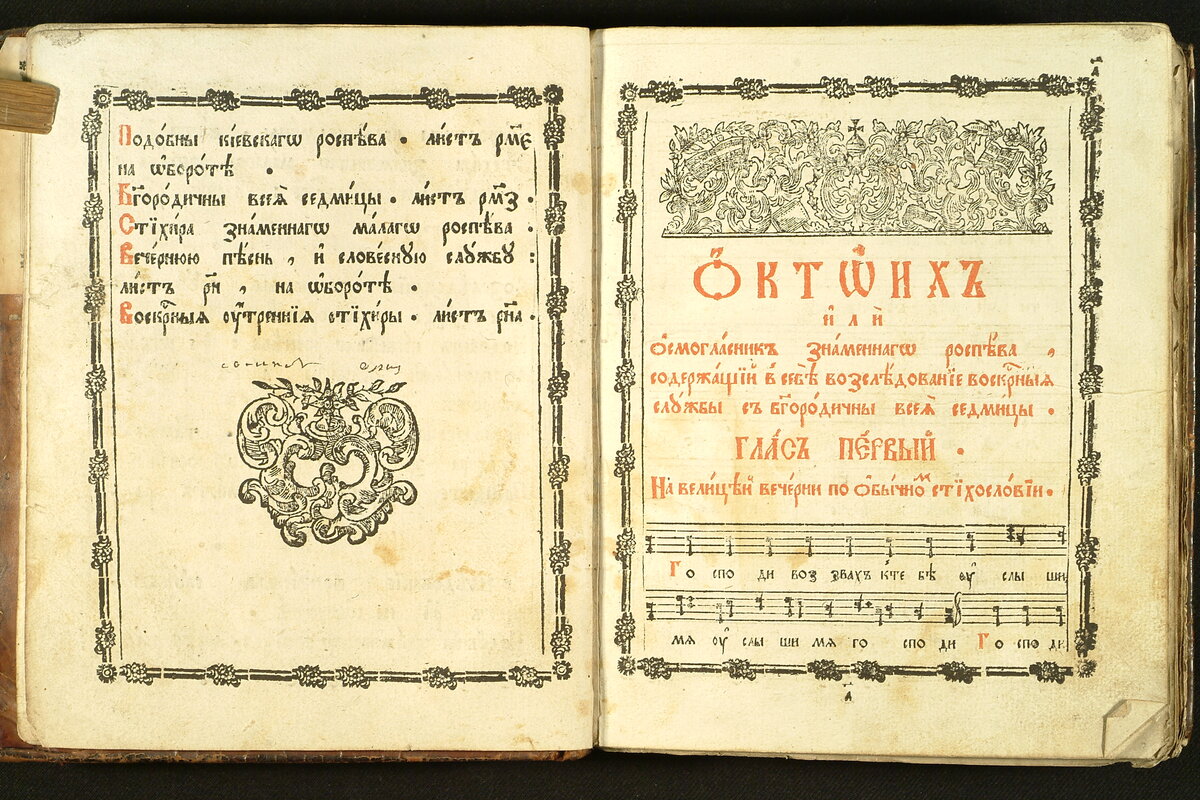 Подо́бны кі́евскагѡ роспѣ́ва . ли́стъ рм҃є
на ѡ҆боро́тѣ .
Бг҃оро́дичны всеѧ̀ седми́цы . ли́стъ рм҃з .
Стїхи́ра зна́меннагѡ ма́лагѡ роспѣ́ва .
Вече́рнюю пѣ́снь , и҆ слове́сную слу́жбу :
ли́стъ рн҃ , на ѡ҆боро́тѣ .
Воскрⷭ҇ныя ᲂу҆́треннїя стїхи́ры . ли́стъ рн҃а .
а҃
Ѻ҆КТѠ́ИХЪ
и҆лѝ
Ѻ҆смогла́сникъ зна́меннагѡ роспѣ́ва ,
содержа́щїй в себѣ̀ возслѣ́дованїе воскрⷭ҇ныя
слу́жбы съ бг҃оро́дичны всеѧ̀ седми́цы .
ГЛА́СЪ ПЕ́РВЫЙ .
На вели́цѣй вече́рни по ѻ҆бы́чноⷨ стїхосло́вїи .
Го спо ди воз звахъ к̾те бѣ ᲂу҆ слы ши
мѧ ᲂу҆ слы ши мѧ го спо ди Го спо ди
а҃